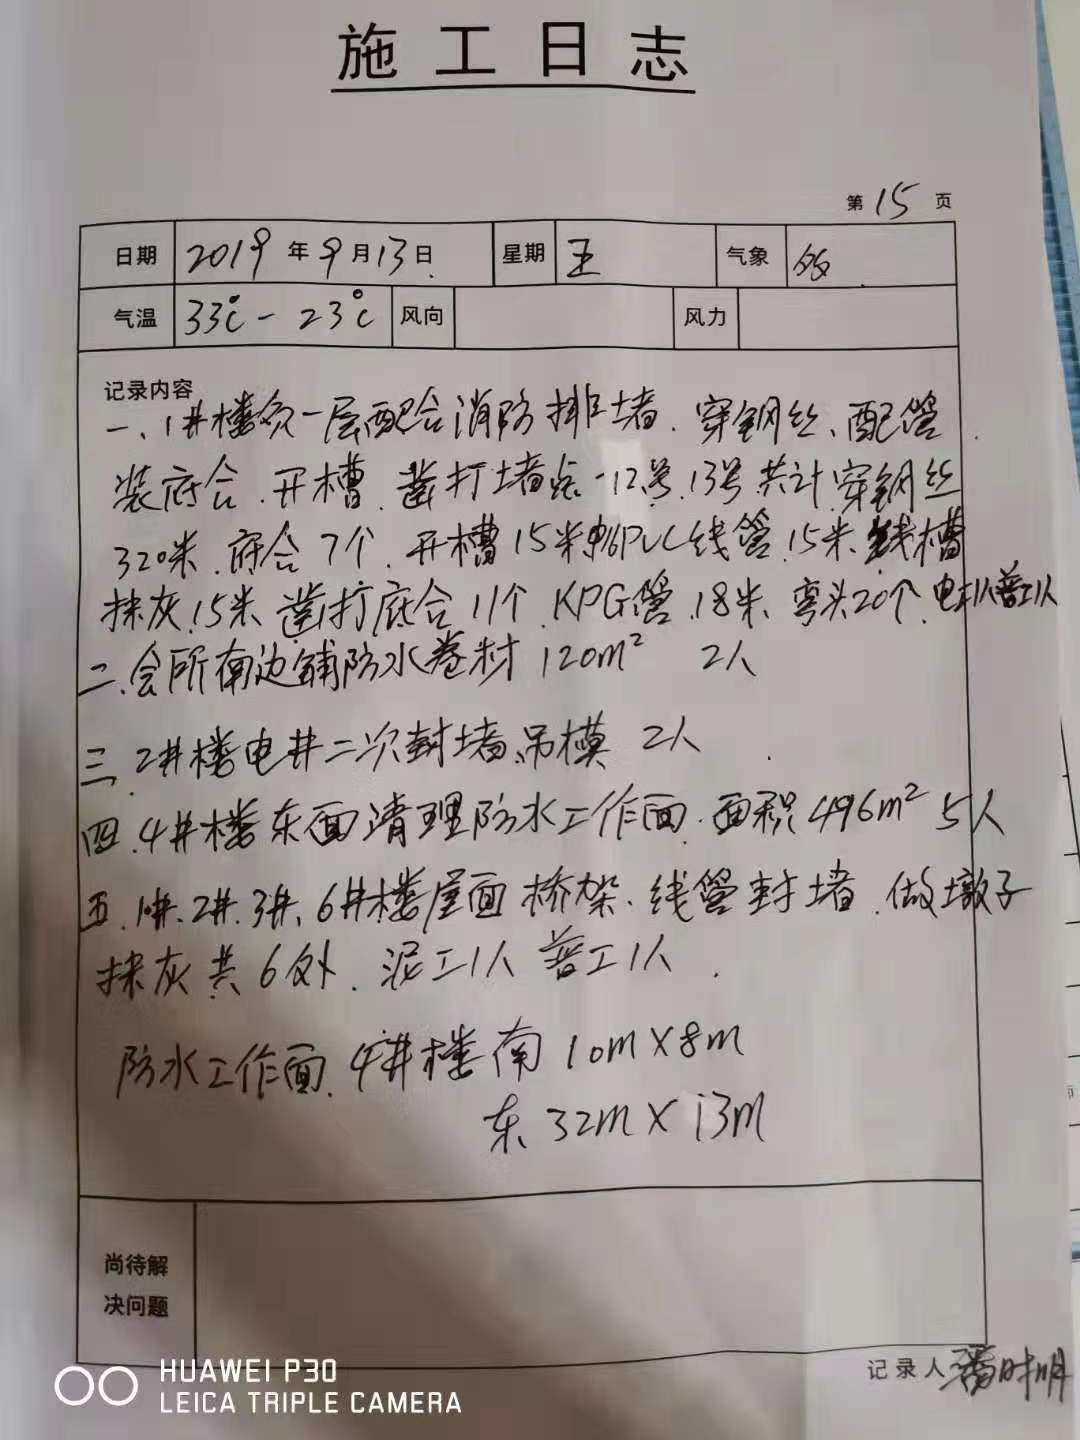 施工日志
第 15 页
日期 2019 年 9 月 13 日 星期 五 气象
气温 33℃ - 23℃ 风向 风力
记录内容
一、1#楼负一层配合消防排堵、穿钢丝、配管、
装底合、开槽、凿打堵点-12号、13号共计穿钢丝
320米、底合7个、开槽15米 PVC线管15米、线槽
抹灰15米、凿打底合11个、KPG管18米、弯头20个、电工1人普工1人
二、会所南边铺防水卷材 120m² 2人
三、2#楼电井二次封堵、吊模 2人
四、4#楼东面清理防水工作面、面积496m² 5人
五、1#、2#、3#、6#楼屋面桥架、线管封堵、做墩子
抹灰共6处、泥工1人 普工1人
防水工作面、4#楼南 10m×8m
东、32m×13m
尚待解
决问题
记录人 潘时明
HUAWEI P30
LEICA TRIPLE CAMERA